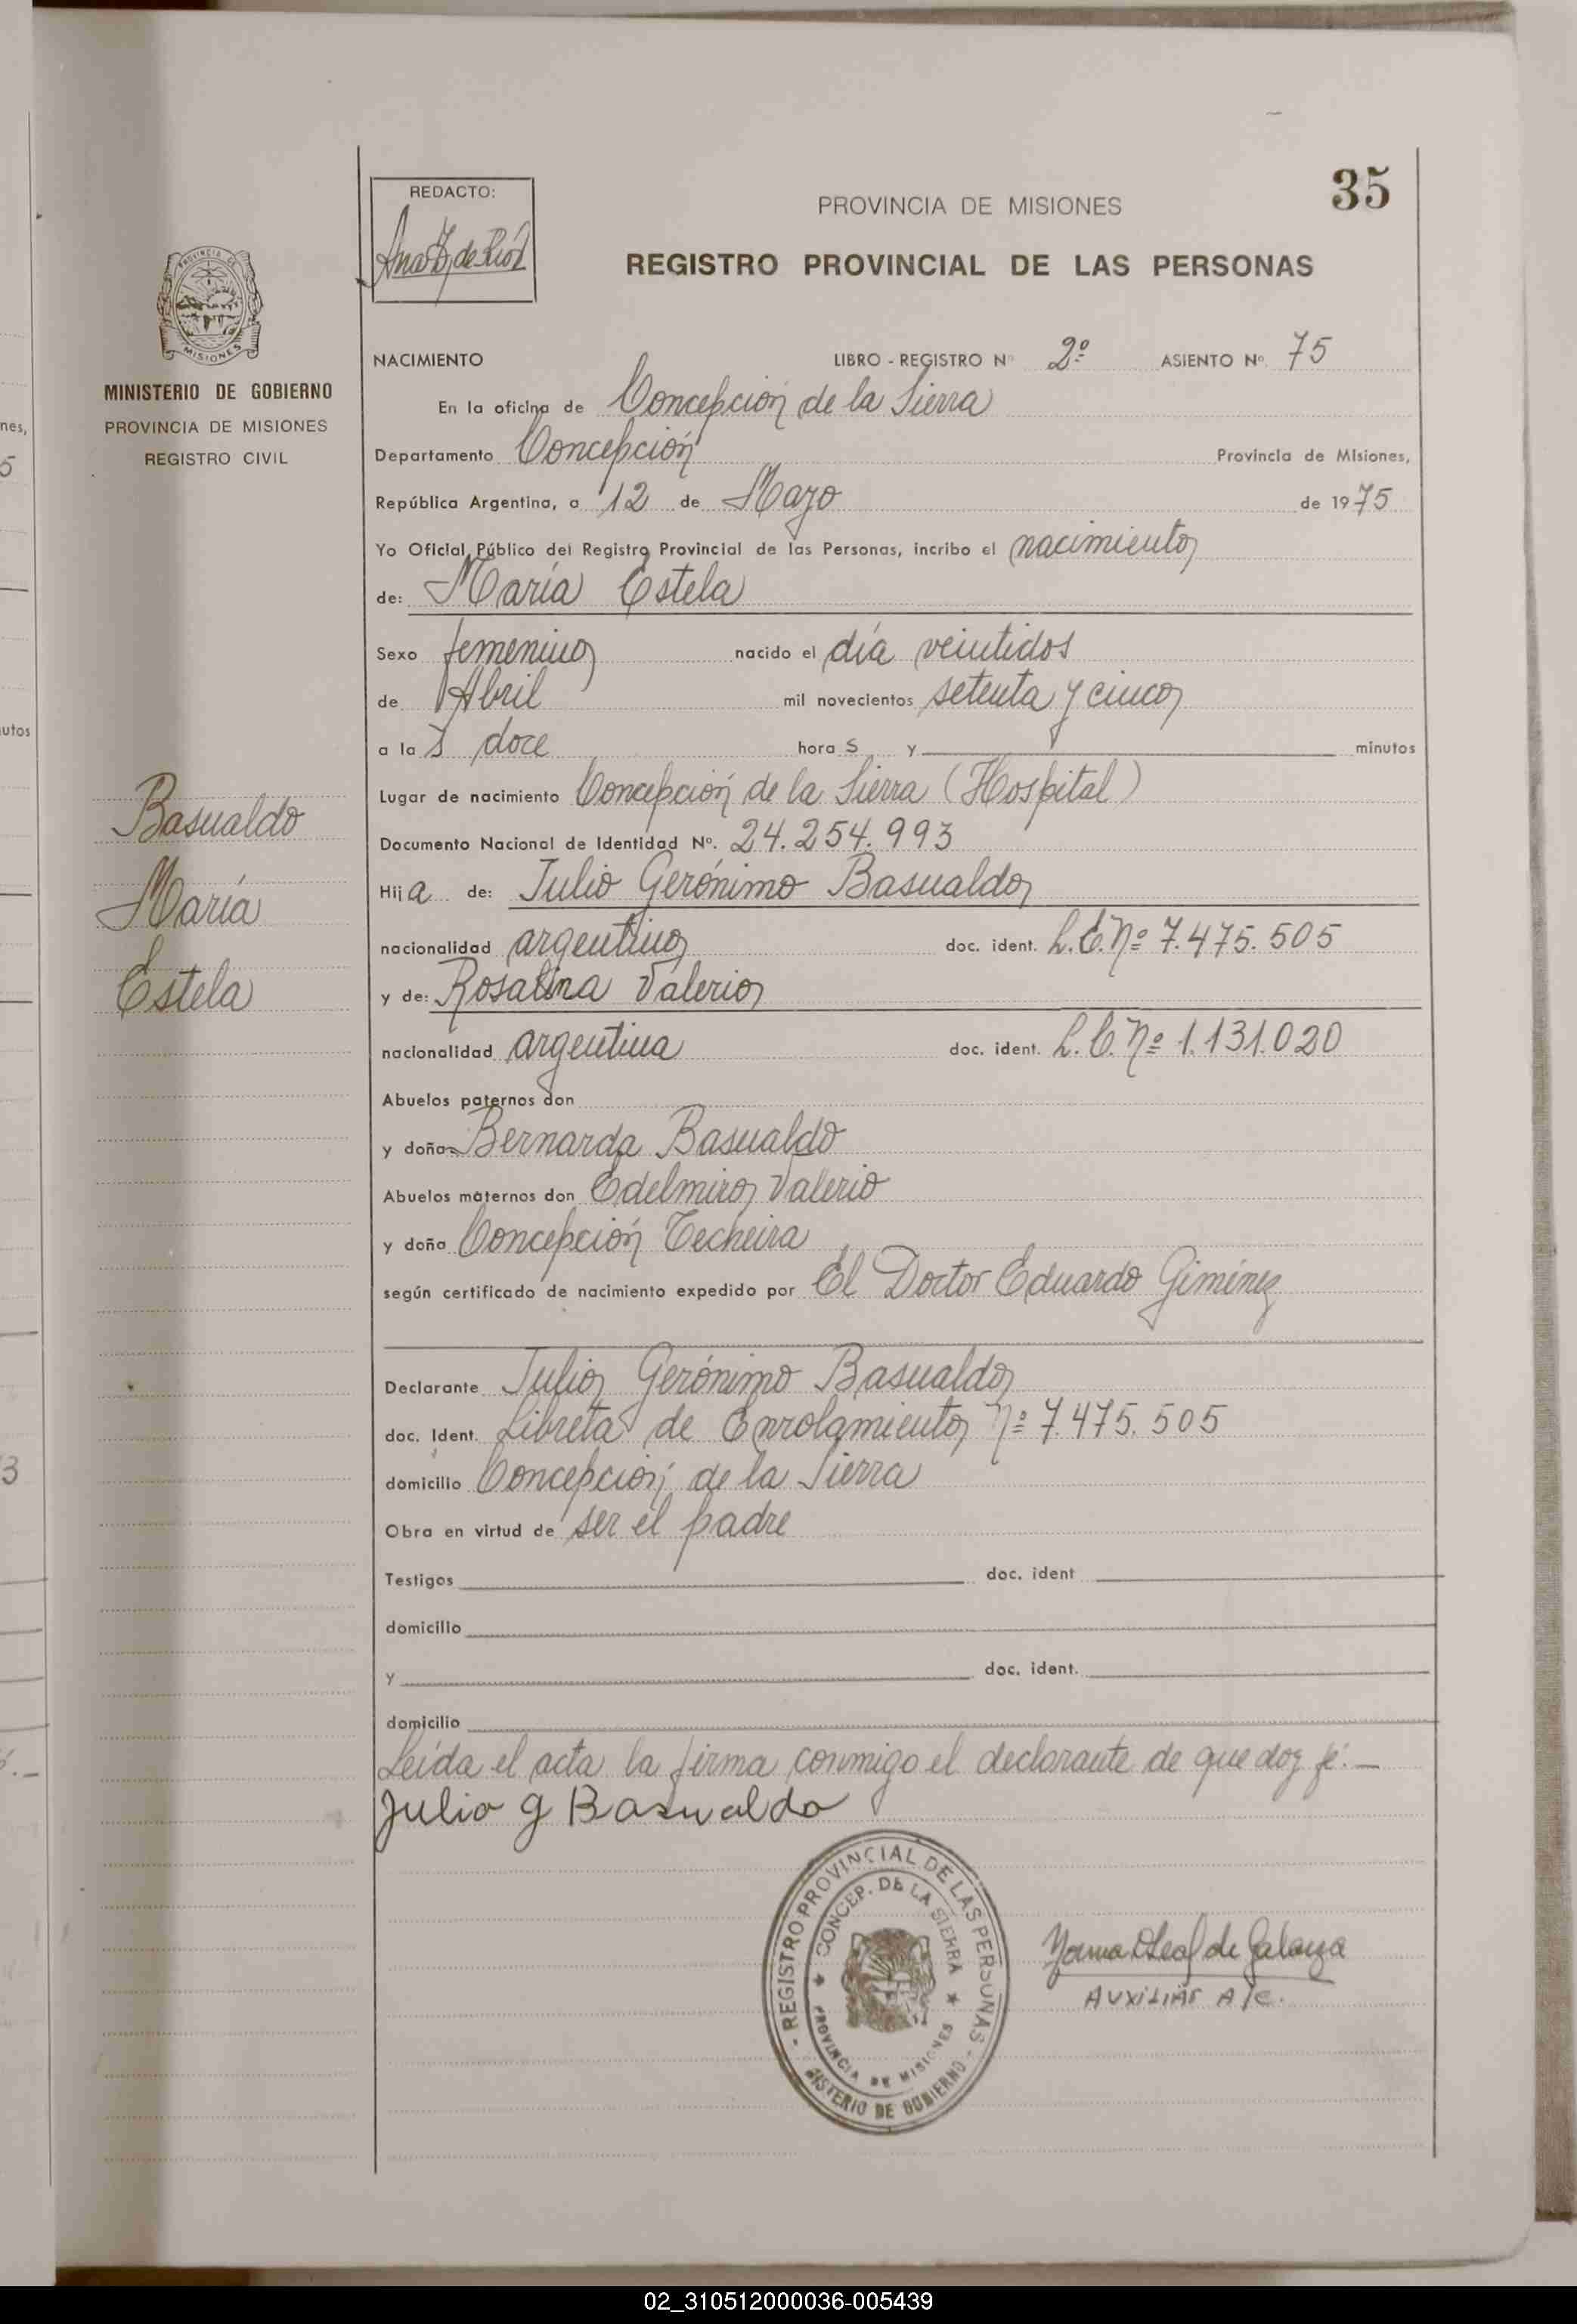 35
REDACTO:
PROVINCIA DE MISIONES
REGISTRO PROVINCIAL DE LAS PERSONAS
MISIONES
MINISTERIO DE GOBIERNO
PROVINCIA DE MISIONES
REGISTRO CIVIL
NACIMIENTO LIBRO - REGISTRO Nº 2º ASIENTO Nº. 75
En la oficina de Concepción de la Sierra
Departamento Concepción Provincia de Misiones,
República Argentina, a 12 de Mayo de 1975
Yo Oficial Público del Registro Provincial de las Personas, incribo el nacimiento
de: María Estela
Sexo femenino nacido el día veintidos
de Abril mil novecientos setenta y cinco
a las doce horas y minutos
Lugar de nacimiento Concepción de la Sierra (Hospital)
Documento Nacional de Identidad Nº. 24.254.993
Hija de: Julio Gerónimo Basualdo
nacionalidad argentino doc. ident. L.E. Nº 7.475.505
y de: Rosalina Valerio
nacionalidad argentina doc. ident. L.C. Nº 1.131.020
Abuelos paternos don
y doña Bernarda Basualdo
Abuelos maternos don Edelmiro Valerio
y doña Concepción Techeira
según certificado de nacimiento expedido por El Doctor Eduardo Giménez
Declarante Julio Gerónimo Basualdo
doc. Ident. Libreta de Enrolamiento Nº 7.475.505
domicilio Concepción de la Sierra
Obra en virtud de ser el padre
Testigos doc. ident
domicilio
y doc. ident.
domicilio
Leída el acta la firma conmigo el declarante de que doy fé.—
Julio G Basualdo
Basualdo
María
Estela
- REGISTRO PROVINCIAL DE LAS PERSONAS -
CONCEP. DE LA SIERRA
PROVINCIA DE MISIONES
NISTERIO DE GOBIERNO
AUXILIAR A/C.
nes,
5
utos
3
02_310512000036-005439